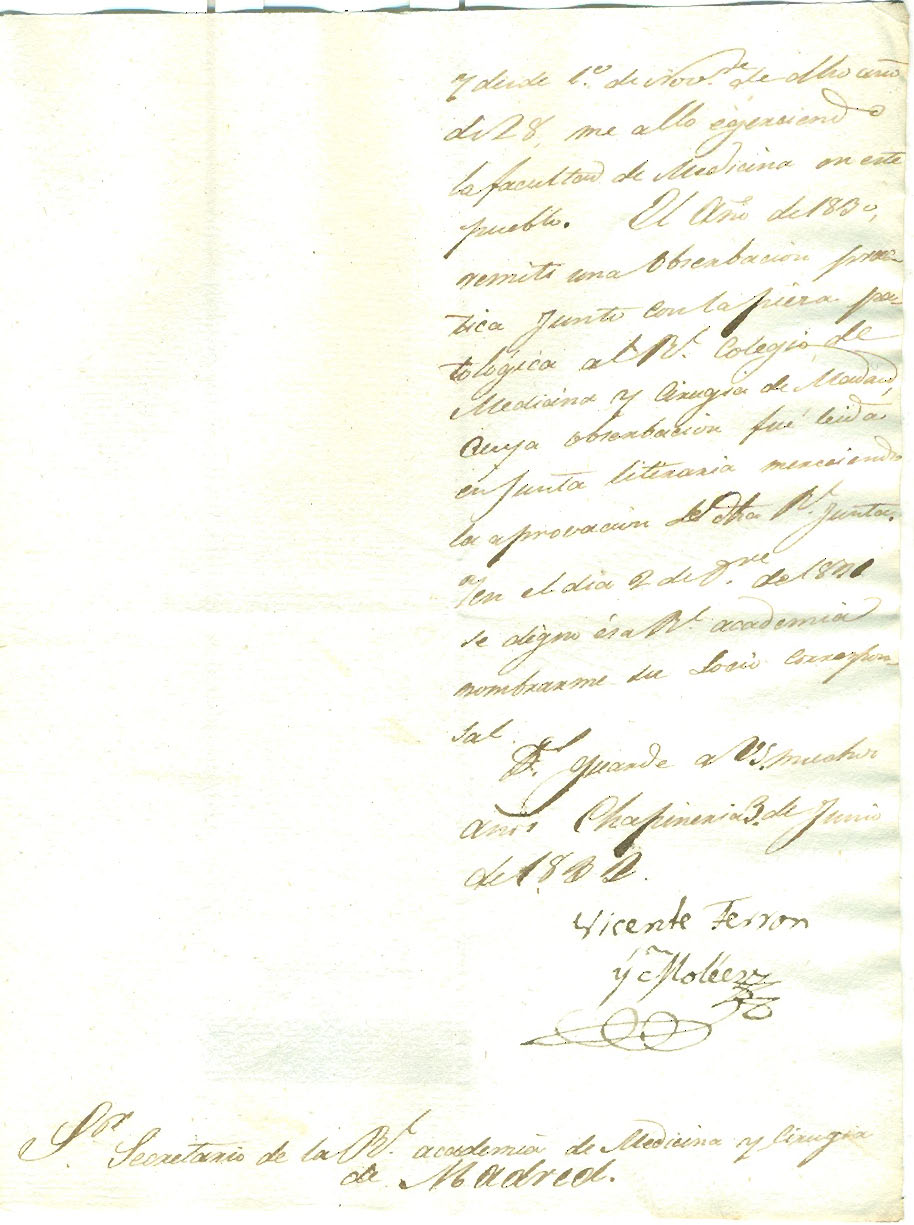 y desde 1.º de Nov.re de dho año
de 28, me allo egerciendo
la facultad de Medicina en este
pueblo. El Año de 1830,
remiti una Obserbacion prac-
tica junto con la pieza pa-
tológica al R.l Colegio de
Medicina y Cirugia de Madrid,
cuya obserbacion fué leida
en Junta literaria mereciendo
la aprovacion de dha R.l Junta.
Y en el dia 2 de de 1831
se digno ésa R.l academia
nombrarme su Socio correspon-
sal.
D.s guarde a VS. muchos
años Chapineria 3. de Junio
de 1832.
Vicente Ferron
y
S.or Secretario de la R.l academia de Medicina y Cirugia
de Madrid.